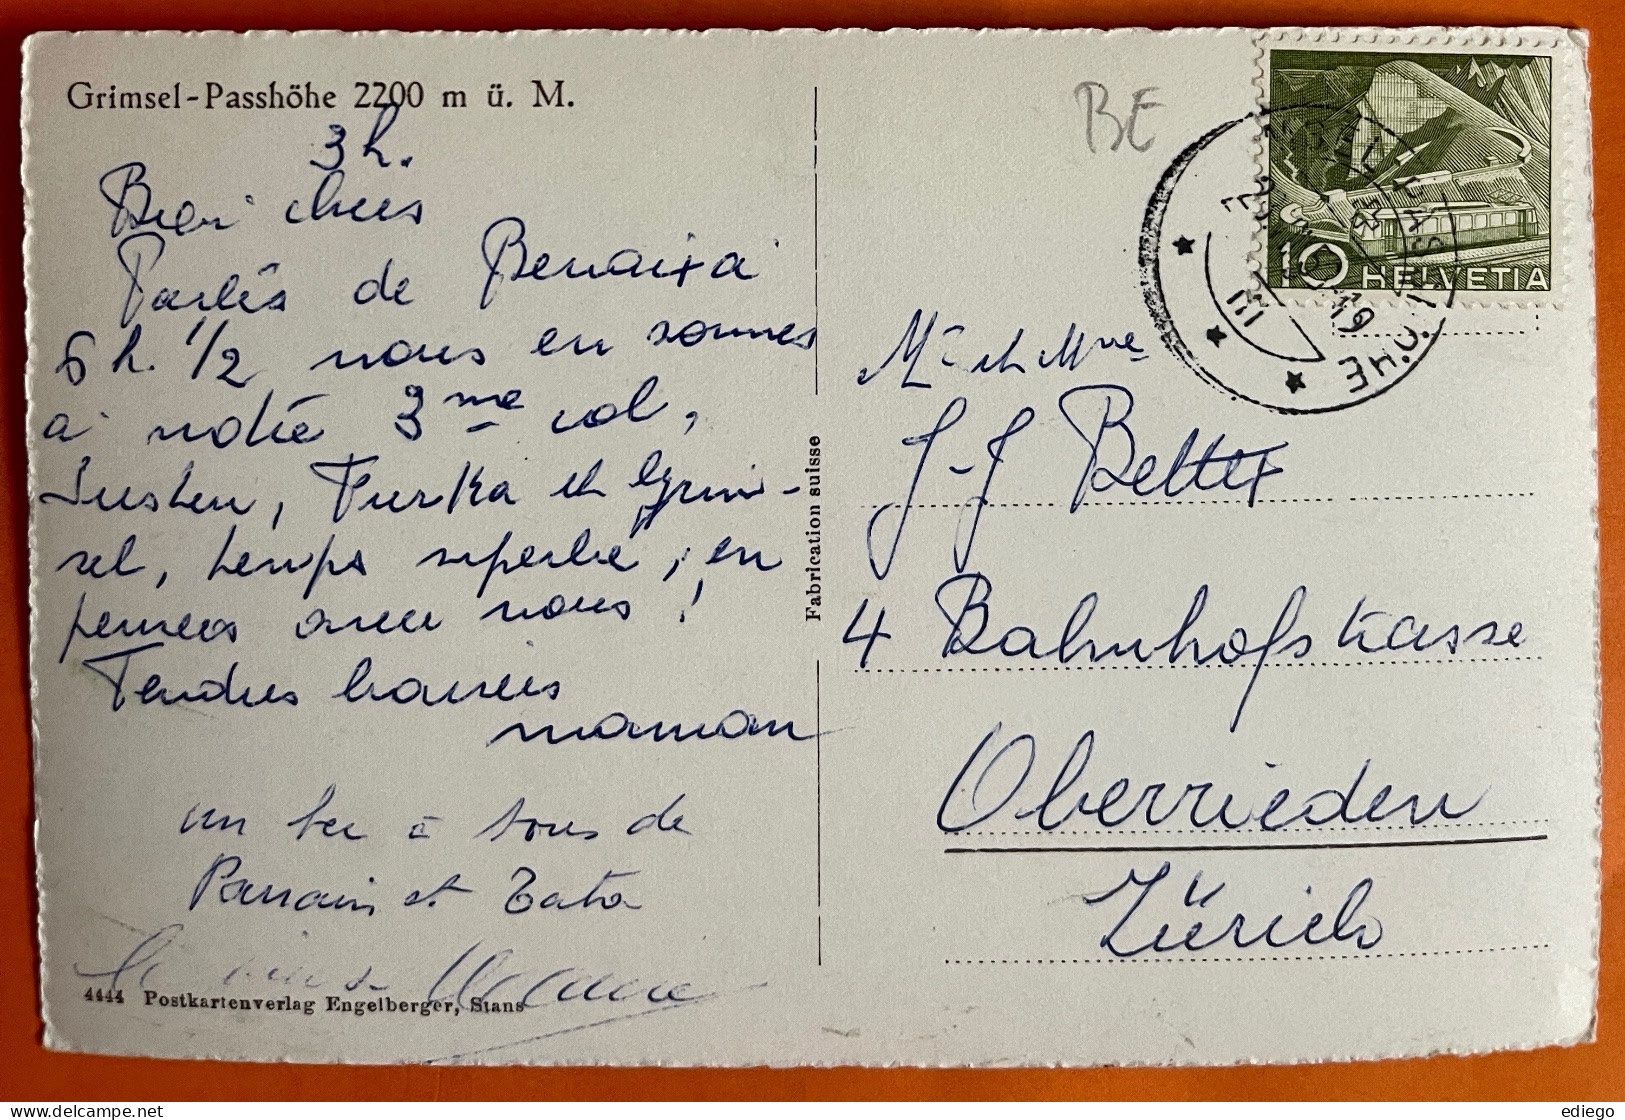 Grimsel-Passhöhe 2200 m ü. M.
3h.
Bien chers
Partis de Benaixa
6 h. 1/2 nous en sommes
à notre 3me col,
Susten, Furka et Grim-
sel, temps superbe, en
pensées avec nous!
Tendres baisers
maman
un bec à tous de
Parrain et Tata
4444 Postkartenverlag Engelberger, Stans
Fabrication suisse
BE
10 HELVETIA
Mr et Mme
J-J Bettex
4 Bahnhofstrasse
Oberrieden
Zürich
ediego